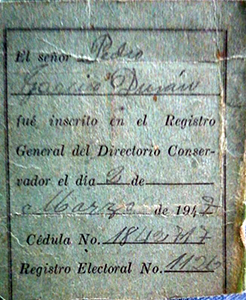 El señor Pedro
García Durán
fué inscrito en el Registro
General del Directorio Conser-
vador el día 2 de
Marzo de 1947
Cédula No. 1842717
Registro Electoral No.